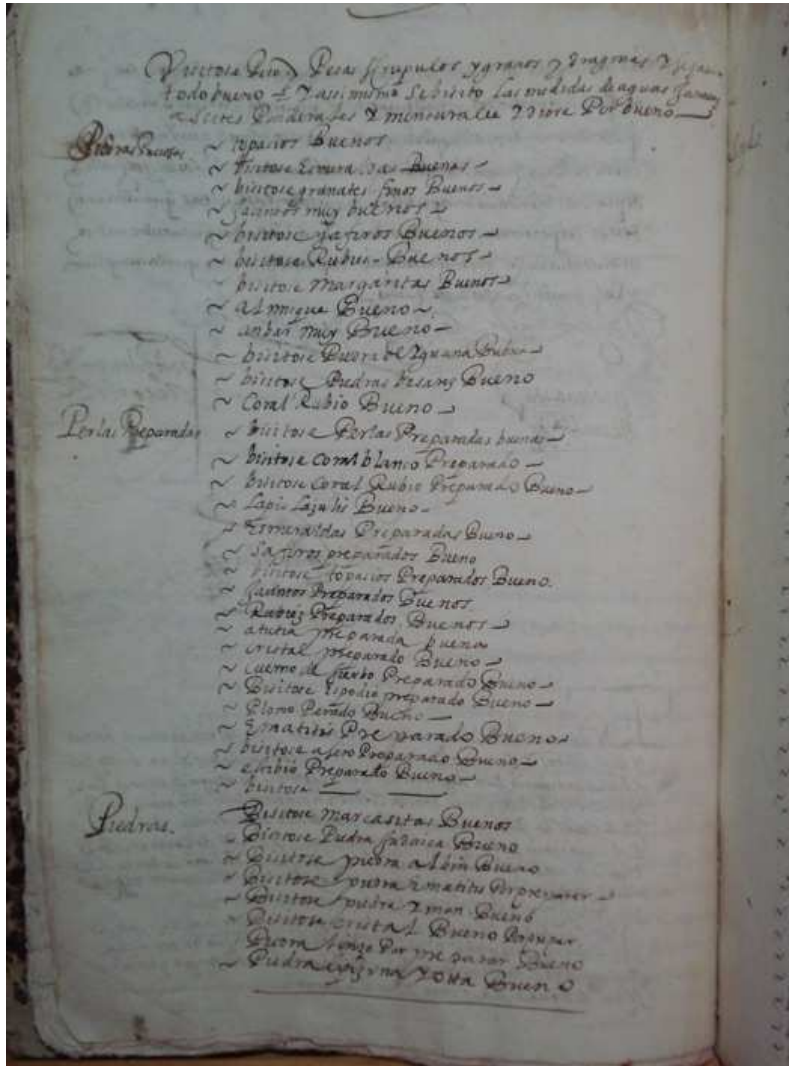 Vicitose Peso y Pesas scrupulos y granos y dragmas
todo bueno Y assimismo se bisito las medidas de aguas
aseites Ponderales Y mensurales Y diose Por bueno
Piedras Preciosas
~ topacios Buenos
~ bisitose Esmeraldas Buenas
~ bicitose granates finos Buenos
~ Jacintos muy buenos
~ bicitose Zafiros Buenos
~ bicitose Rubies Buenos
bicitose Margaritas Buenos
~ almique Bueno
~ anbar muy Bueno
~ bicitose Piedra de Yguana Buena
~ bicitose Piedras besares Bueno
~ Coral Rubio Bueno
Perlas Preparadas
~ bicitose Perlas Preparadas buenas
~ bicitose Coral blanco Preparado
~ bicitose Coral Rubio Preparado Bueno
~ Lapis Lazulis Bueno
~ Esmeraldas Preparadas Bueno
~ Safiros preparados Bueno
~ bicitose topacios Preparados Bueno
~ Jacintos Preparados Buenos
~ Rubies Preparados Buenos
~ atutia preparada buena
~ cristal preparado Bueno
~ Cuerno de sierbo Preparado Bueno
~ Bicitose Espodio preparado Bueno
~ Plomo Bueno
~ Ematitis Preparado Bueno
~ bicitose asero Preparado Bueno
~ Preparado Bueno
~ bicitose
Piedras.
Bicitose Marcasitas Buenos
~ Bicitose Piedra Judaica Bueno
~ Bicitose piedra albin Bueno
~ Bicitose piedra Ematitis
~ Bicitose piedra Yman Bueno
~ Bicitose cristal Bueno
Piedra Por preparar Bueno
~ Piedra Bueno